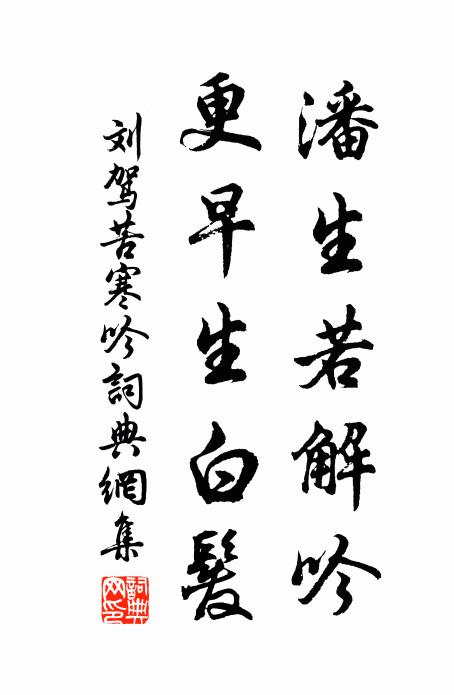 潘生若解吟
更早生白髮
刘驾苦寒吟詞典網集
詞典網印